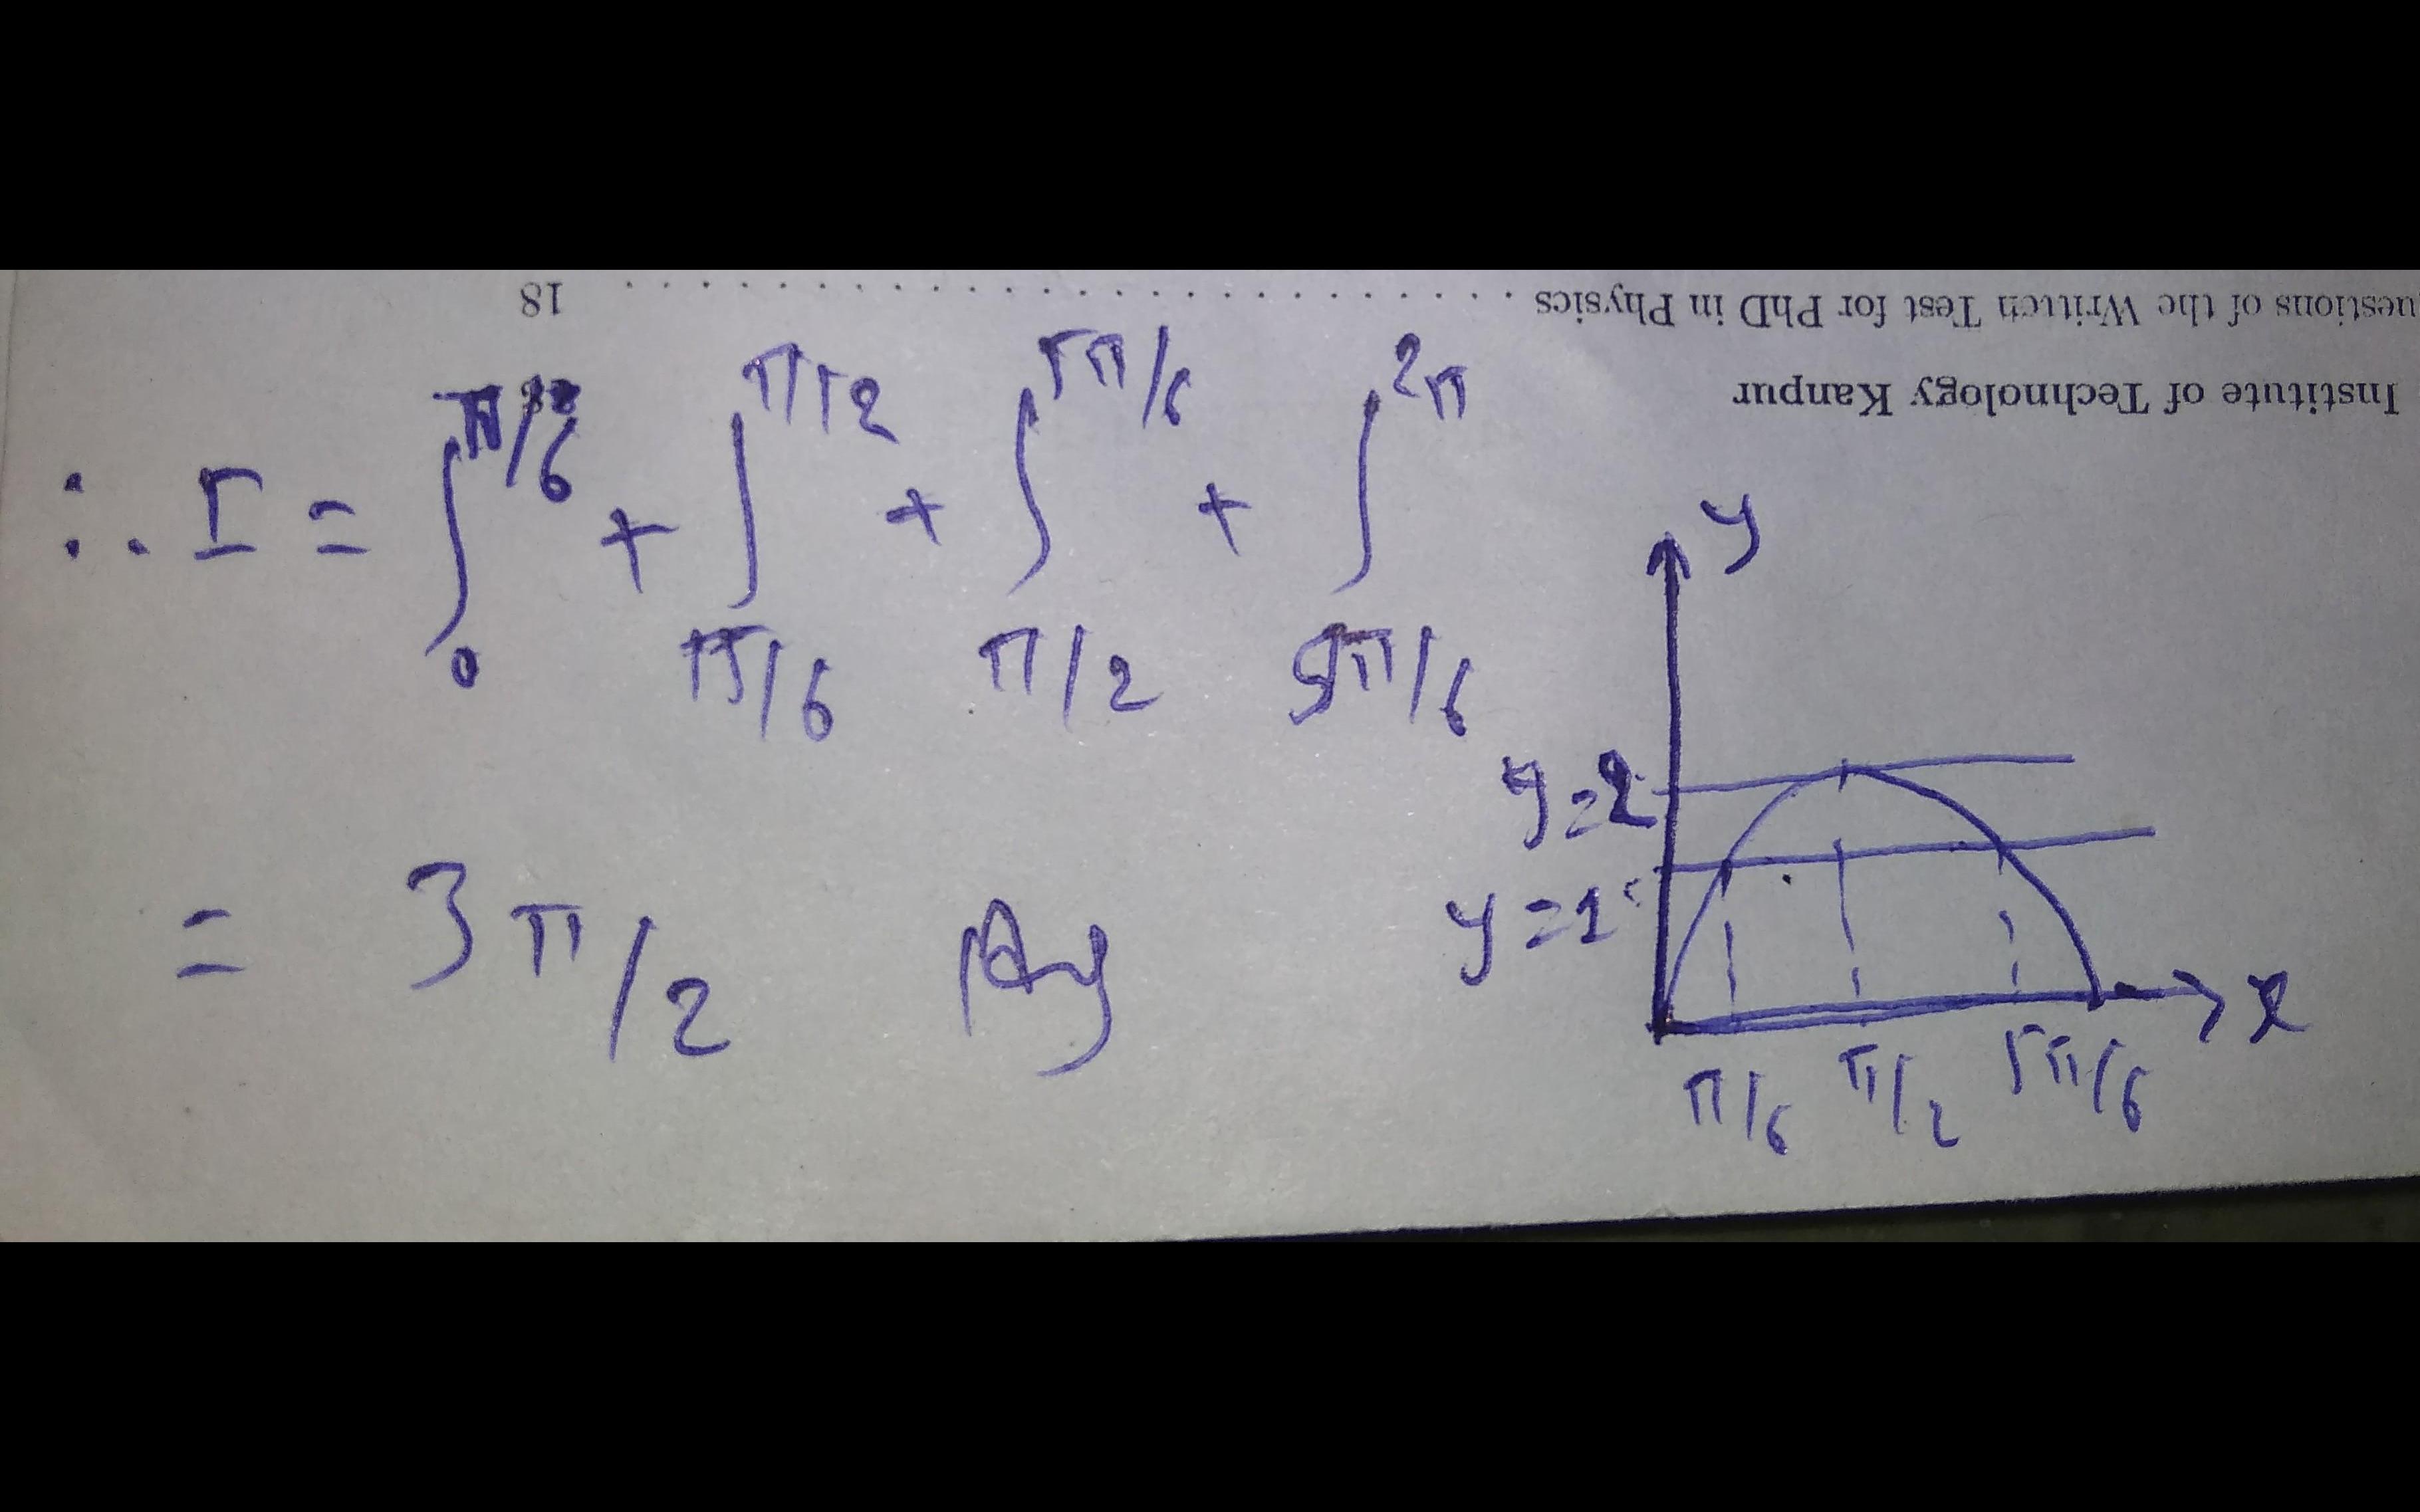 uestions of the Written Test for PhD in Physics . . . . . . . . . . . . . . . . . . . . . . . . 18
Institute of Technology Kanpur
∴ I = ∫₀^{π/6} + ∫_{π/6}^{π/2} + ∫_{π/2}^{5π/6} + ∫_{5π/6}^{2π}
= 3π/2
y
y=2
y=1
x
π/6 π/2 5π/6